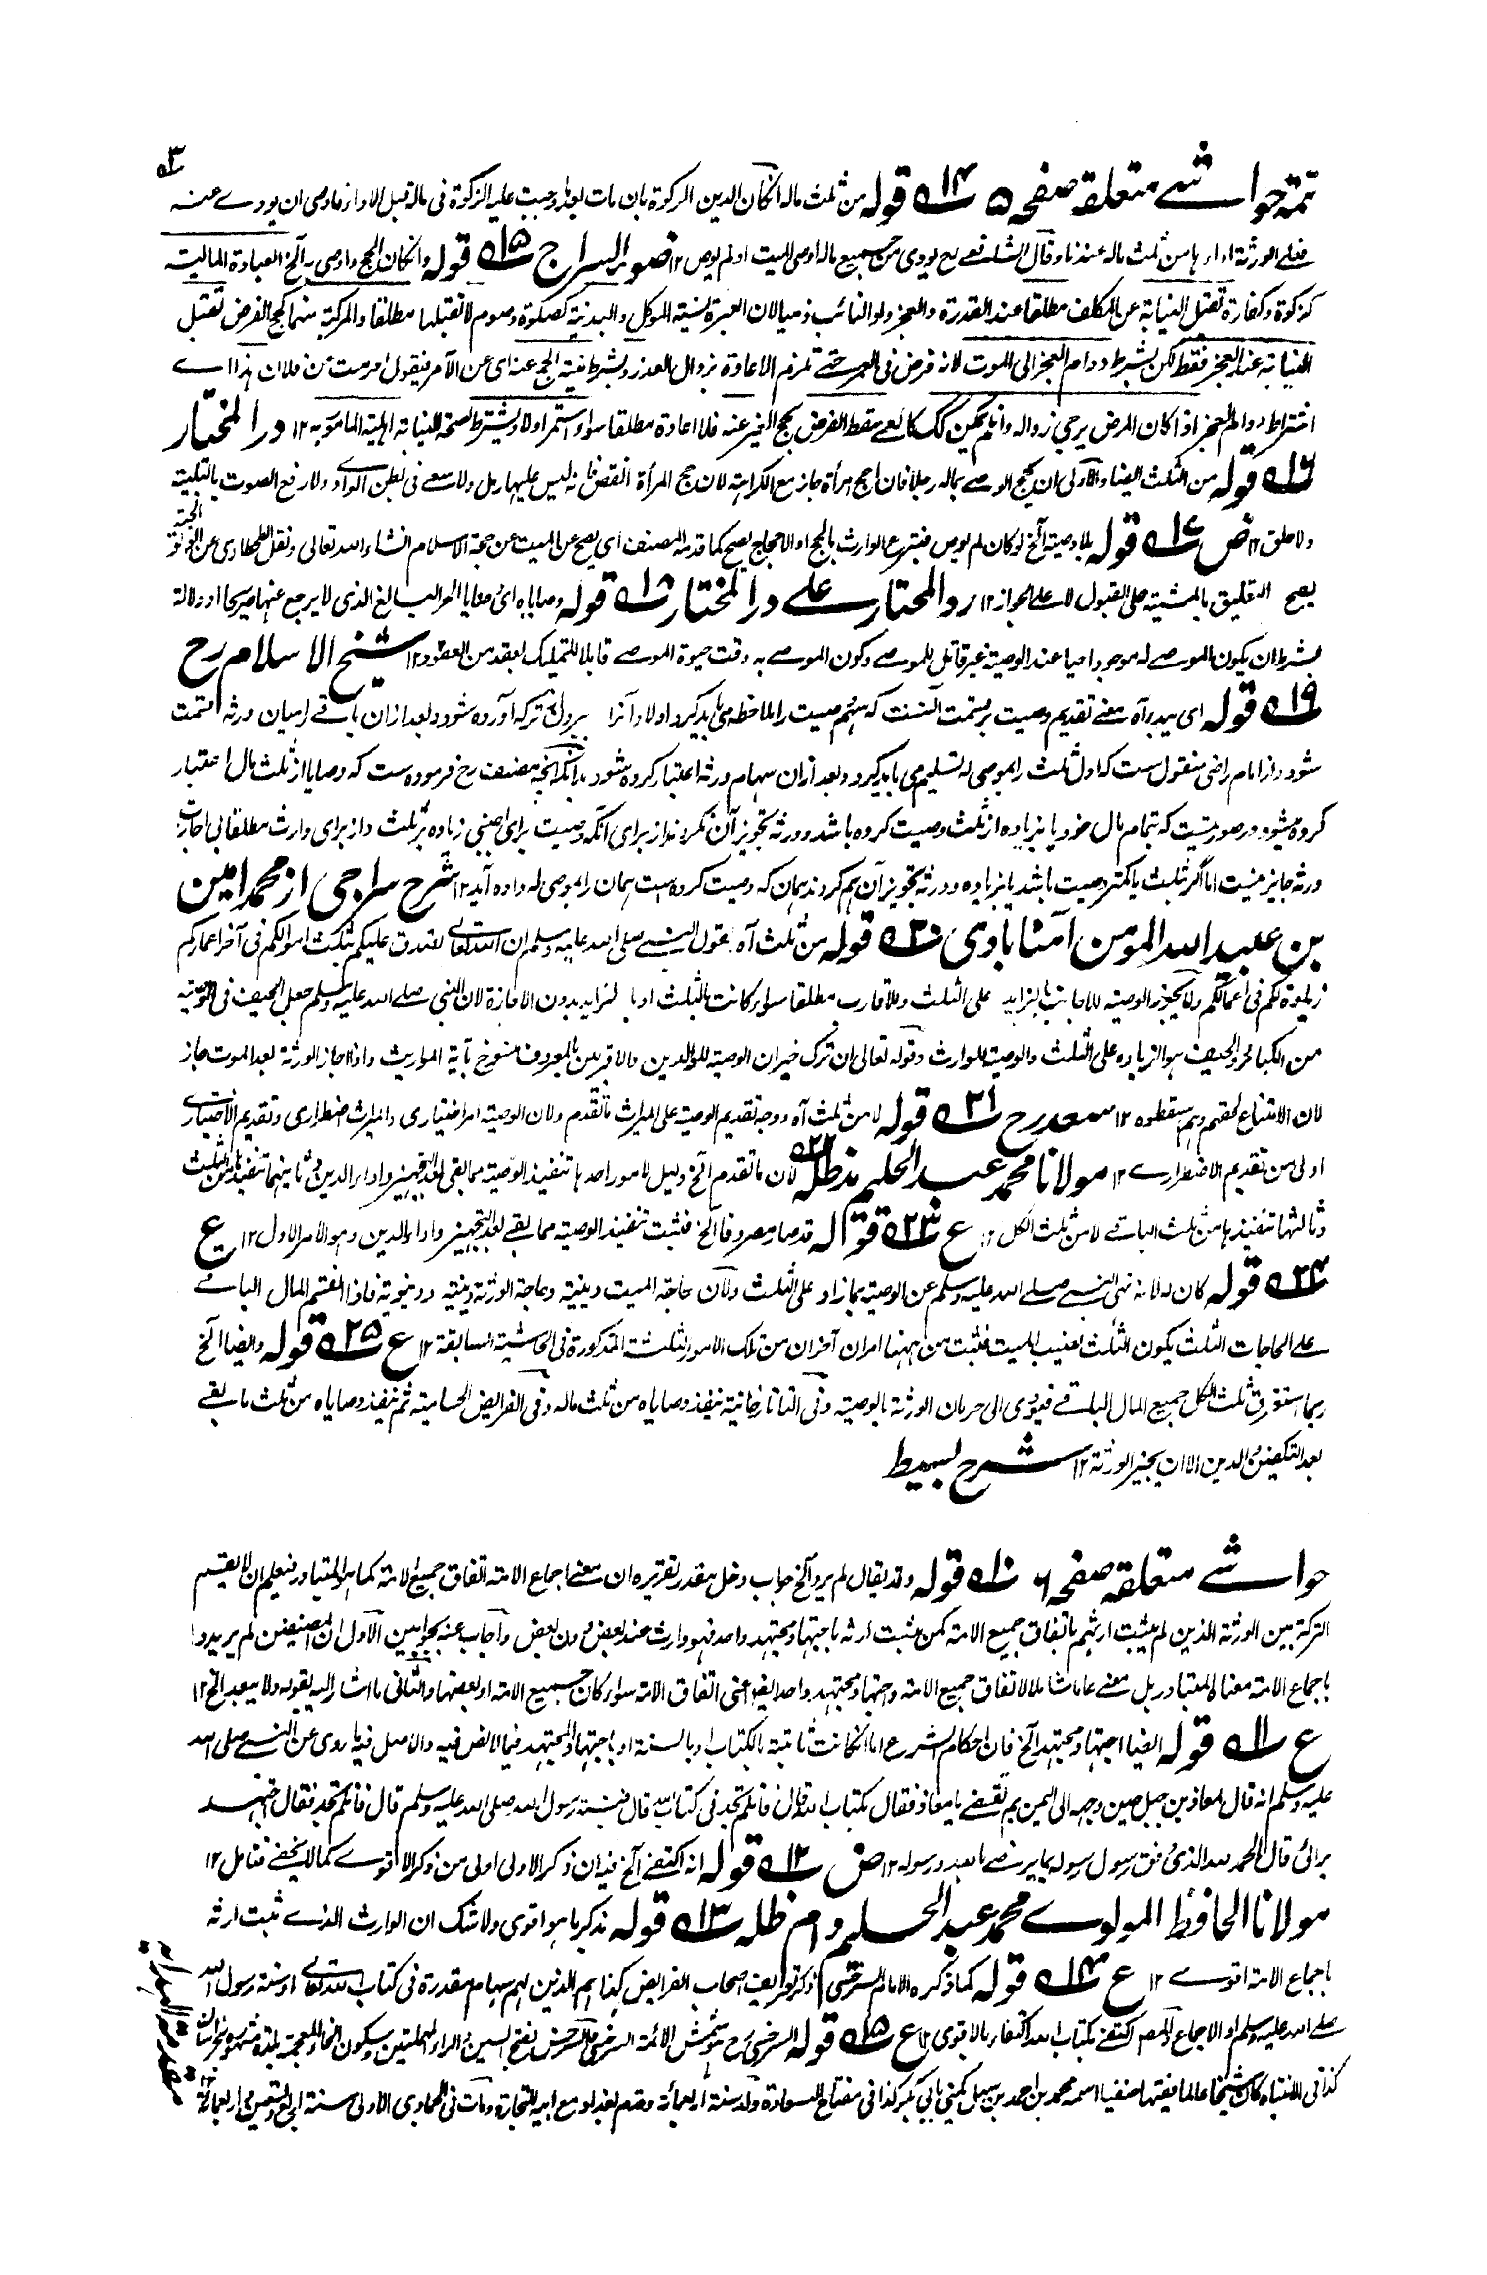 ٣
تتمہ حواشے متعلقہ صفحہ ۵ ۱۴ قولہ من ثلث مالہ انکان الدین الزکوة بان مات بعد وجبت علیہ الزکوة فی مالہ قبل الاداء فاوصی ان یودے عنہ
فعلی الورثة اداءہا من ثلث مالہ عندنا وقال الشافعے رح یودی من جمیع مالہ اوصی المیت او لم یوص ۱۲ ضوء السراج ۱۵ قولہ وانکان الحج واوصی بہ آلخ العبادة المالیة
کزکوة وکفارة تقبل النیابة عن المکلف مطلقا عند القدرة والعجز ولو النائب ذمیا لان العبرة لنیة الموکل والبدنیة کصلوة وصوم لا تقبلہا مطلقا والمرکبة منہما کحج الفرض تقبل
النیابة عند العجز فقط لکن بشرط دوام العجز الی الموت لانہ فرض فی العمر حتے تلزم الاعادة بزوال العذر وبشرط نیة الحج عنہ ای عن الآمر فیقول احرمت عن فلان ہذا اے
اشتراط دوام العجز اذا کان المرض یرجی زوالہ وان لم یکن کذلک کالعمے سقط الفرض بحج الغیر عنہ فلا اعادة مطلقا سواء استمر اولا ویشترط لصحة النیابة اہلیة المامور بہ ۱۲ در المختار
۱۶ قولہ من الثلث ایضا والاولی ان یحج الوصے بمالہ رجلا فان احج امرأة جاز مع الکراہة لان حج المرأة انقص فانہ لیس علیہا رمل ولا سعے فی بطن الوادے ولا رفع الصوت بالتلبیة
ولا حلق ۱۲ ض ۱۷ قولہ بلا وصیة آلخ لو کان لم یوص فتبرع الوارث بالحج او الاحجاج یصح کما قدمہ المصنف ای یصح عن المیت عن حجة الاسلام انشاء اللہ تعالی ونقل الطحطاوی عن الولوالجیة
یصح التعلیق بالمشیة علی القبول لا علے الجواز ۱۲ رد المحتار علے در المختار ۱۸ قولہ وصایاہ ای وصایا الحر البالغ الذی لا یرجع عنہا صریحا او دلالة
بشرط ان یکون الموصے لہ موجودا حیا عند الوصیة غیر قاتل للموصے وکون الموصے بہ وقت حیوة الموصے قابلا للتملیک بعقد من العقود ۱۲ شیخ الاسلام رح
۱۹ قولہ ای یبدء آہ معنے تقدیم وصیت بر قسمت آنست کہ سہم وصیت را ملاحظہ می باید کرد اولا و آنرا بیرون ترکہ آوردہ شود و بعد ازان باقے را میان ورثہ قسمت
شود و از امام راضی منقول ست کہ اول ثلث را بموصی لہ تسلیم می باید کرد و بعد ازان سہام ورثہ اعتبار کردہ شود بدانکہ آنچہ مصنف رح فرمودہ ست کہ وصایا از ثلث مال اعتبار
کردہ میشود در صورتیست کہ بتمام مال خود یا بزیادہ از ثلث وصیت کردہ باشد و ورثہ تجویز آن نکردند از برای آنکہ وصیت برای اجنبی زیادہ بر ثلث و از برای وارث مطلقا بی اجازت
ورثہ جایز نیست اما اگر ثلث یا کمتر وصیت باشد یا بزیادہ و ورثہ تجویز آن ہم کردند ہمان کہ وصیت کردہ است ہمان را بموصی لہ دادہ آید ۱۲ شرح سراجی از محمد امین
بن عبید اللہ المومن آمنابادی ۲۰ قولہ من ثلث آہ بقول النبے صلی اللہ علیہ وسلم ان اللہ تعالی تصدق علیکم بثلث اموالکم فی آخر اعمارکم
زیادة لکم فی اعمالکم ولا یجوز الوصیة للاجانب بالمزاید علی الثلث وللاقارب مطلقا سواء کانت بالثلث او بالمزاید بدون الاجازة لان النبی صلے اللہ علیہ وسلم جعل الحیف فی الوصیة
من الکبائر والحیف ہو الزیادہ علی الثلث والوصیة للوارث وقولہ تعالی ان ترک خیران الوصیة للوالدین والاقربین بالمعروف منسوخ بآیة المواریث واذا اجاز الورثة بعد الموت جاز
لان الامتناع لحقہم وہم اسقطوہ ۱۲ سعد رح ۲۱ قولہ لا من ثلث آہ ووجہ تقدیم الوصیة علی المیراث ما تقدم ولان الوصیة امر اختیاری والمیراث اضطراری وتقدیم الاختیارے
اولی من تقدیم الاضطرارے ۱۲ مولانا محمد عبد الحلیم مدظلہ ۲۲ لان ما تقدم آلخ دلیل لامور احدہا تنفیذ الوصیة مما بقی بعد التجہیز واداء الدین وثانیہما تنفیذہا من الثلث
وثالثہا تنفیذہا من ثلث الباقے لا من ثلث الکل ۱۲ ع ۲۳ قولہ قد صار مصروفا آلخ فثبت تنفیذ الوصیة مما بقے بعد التجہیز واداء الدین وہو الامر الاول ۱۲ ع
۲۴ قولہ کان لہ لانہ نہی النبے صلے اللہ علیہ وسلم عن الوصیة بما زاد علی الثلث ولان حاجة المیت دینیة وحاجة الورثة دینیة ودنیویة فاذا انقسم المال الباقے
علے الحاجات الثلث یکون الثلث نصیب المیت فثبت من ہہنا امران آخران من تلک الامور الثلثة المذکورة فی الحاشیة السابقة ۱۲ ع ۲۵ قولہ وایضا آلخ
ربما استغرق ثلث الکل جمیع المال الباقے فیودی الی حرمان الورثة بالوصیة وفی التاتارخانیة ینفذ وصایاہ من ثلث مالہ وفی الفرایض الحسامیة ثم تنفیذ وصایاہ من ثلث ما بقے
بعد التکفین والدین الا ان یجیز الورثة ۱۲ شرح بسیط
حواشے متعلقہ صفحہ ۶ ۱۰ قولہ وقد یقال لم یرد آلخ جواب دخل مقدر تقریرہ ان معنے اجماع الامة اتفاق جمیع الامة کما ہو المتبادر فنعلم ان لا یقسم
الترکة بین الورثة الذین لم یثبت ارثہم باتفاق جمیع الامة کمن یثبت ارثہ باجتہاد مجتہد واحد فہو وارث عند بعض دون بعض واجاب عنہ بجوابین الاول ان المصنفین لم یریدوا
باجماع الامة معناہ المتبادر بل معنے عاما شاملا لاتفاق جمیع الامة واجتہاد مجتہد واحد ایضا اعنی اتفاق الامة سواء کان جمیع الامة او بعضہا والثانی ما اشار الیہ بقولہ ولا یبعد الخ ۱۲
ع ۱۱ قولہ ایضا اجتہاد مجتہد آلخ فان احکام الشرع اما انکانت ثابتة بالکتاب او بالسنة او باجتہاد المجتہد فیما لا نص فیہ والاصل فیہ ما روی عن النبے صلی اللہ
علیہ وسلم انہ قال لمعاذ بن جبل حین وجہہ الی الیمن بم تقضے یا معاذ فقال بکتاب اللہ قال فان لم تجد فی کتاب اللہ قال فبسنة رسول اللہ صلی اللہ علیہ وسلم قال فان لم تجد فقال اجتہد
برائی قال الحمد للہ الذی وفق رسول رسولہ بما یرضے بہ اللہ ورسولہ ۱۲ ض ۱۲ قولہ انہ اکتفے آلخ فیہ ان ذکر الاولی اولی من ذکر الاقوے کما لا یخفے فتامل ۱۲
مولانا الحافظ المولوے محمد عبد الحلیم دام ظلہ ۱۳ قولہ بذکر ما ہو اقوی ولا شک ان الوارث الذے ثبت ارثہ
باجماع الامة اقوے ۱۲ ع ۱۴ قولہ کما ذکرہ الامام السرخسی ذکر تعریف اصحاب الفرایض بکذا ہم الذین لہم سہام مقدرة فی کتاب اللہ تعالے او سنة رسول اللہ
صلے اللہ علیہ وسلم او الاجماع والمصنف اکتفے بکتاب اللہ اکتفاء بالاقوی ۱۲ ع ۱۵ قولہ السرخسی رح ہو شمس الائمة السرخسی بفتح السین والراء المہملتین وسکون الخاء المعجمة بلدة مشہورة بخراسان
کذا فی الانتباہ کان شیخا عالما فقیہا حنفیا اسمہ محمد بن احمد بن سہل یکنی بابی بکر کذا فی مفتاح السعادة ولد سنة اربعمائة وقدم بغداد مع ابیہ للتجارة ومات فی الجمادی الاولی سنة اربع وتسعین واربعمائة
مقدمة الہدایہ